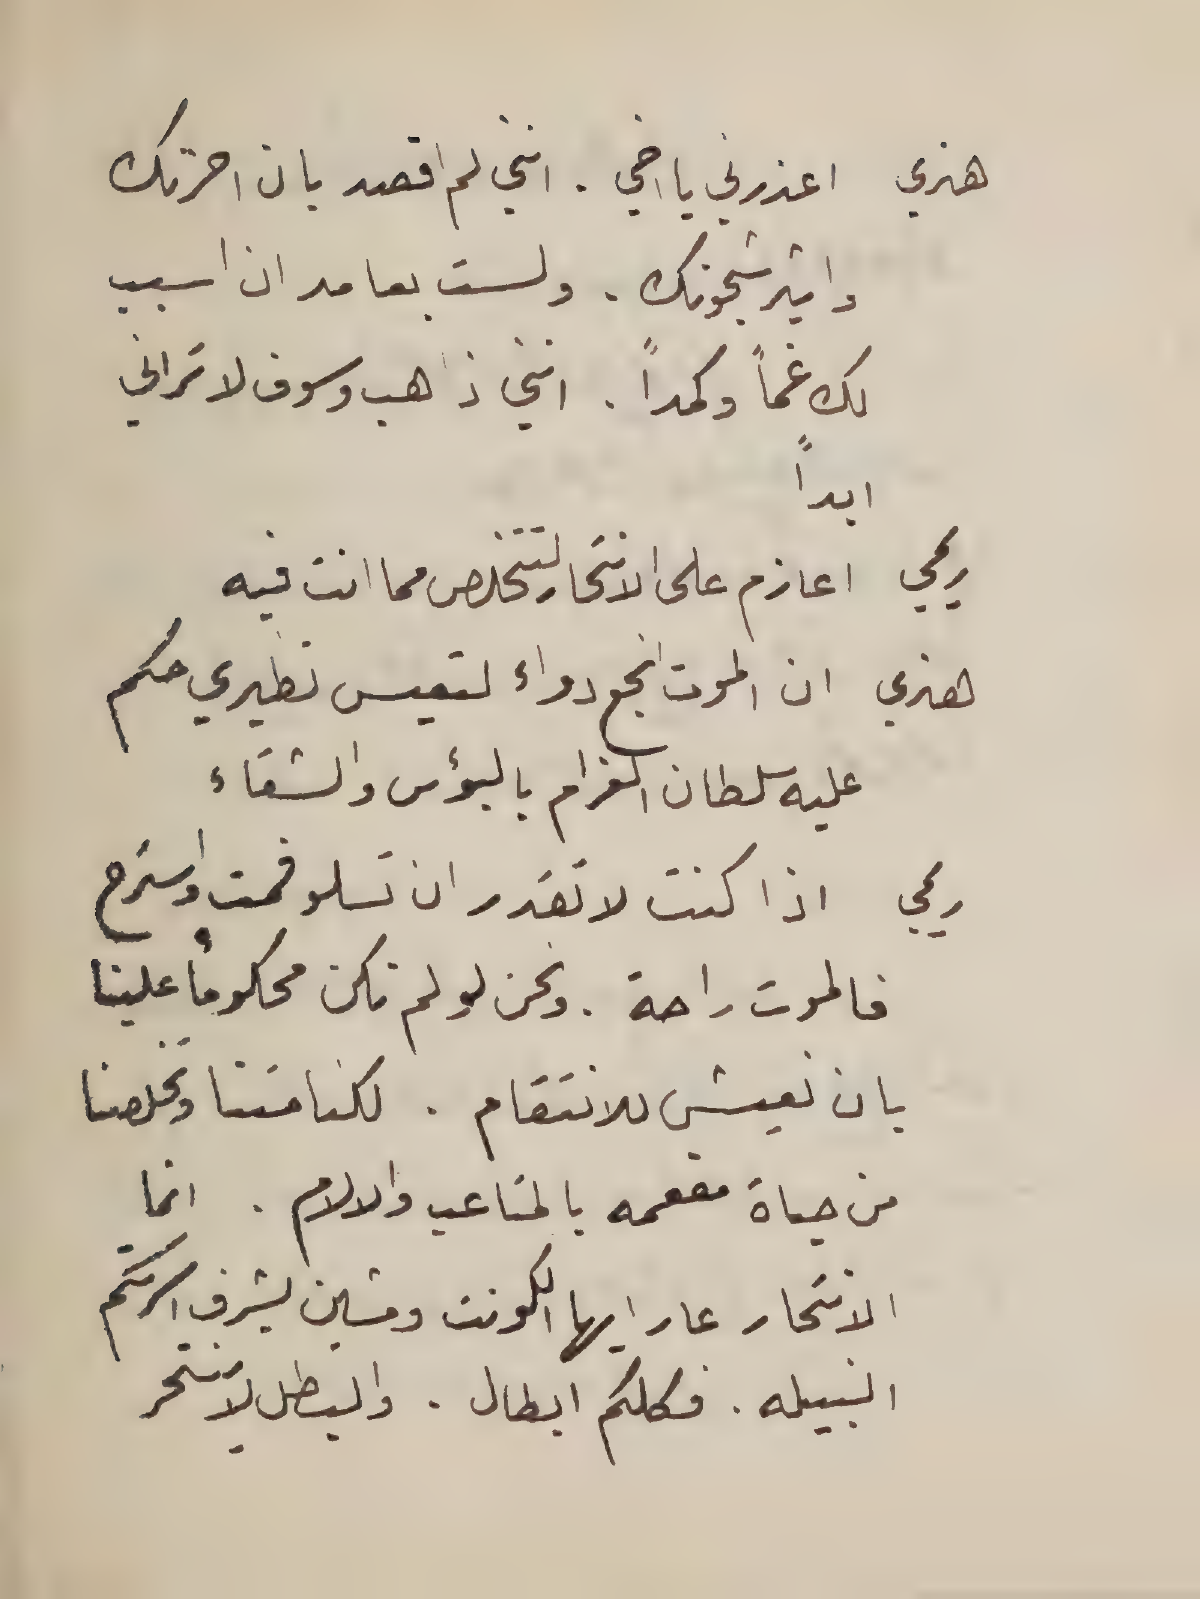 هنري اعذرني يا اخي . انني لم اقصد بان احزنك
واثير شجونك . ولست بعامد ان اسبب
لك غماً وكمداً . انني ذاهب وسوف لا تراني
ابداً
ريمي اعازم على الانتحار لتتخلص مما انت فيه
هنري ان الموت انجع دواء لتعيس نظيري حكم
عليه سلطان الغرام بالبؤس والشقاء
ريمي اذا كنت لا تقدر ان تسلو فمت واسترح
فالموت راحة . ونحن لو لم نكن محكوماً علينا
بان نعيش للانتقام . لكنا متنا وتخلصنا
من حياة مفعمه بالمتاعب والالام . انما
الانتحار عار ايها الكونت ومشين لشرف اسرتكم
النبيله . فكلكم ابطال . والبطل لا ينتحر